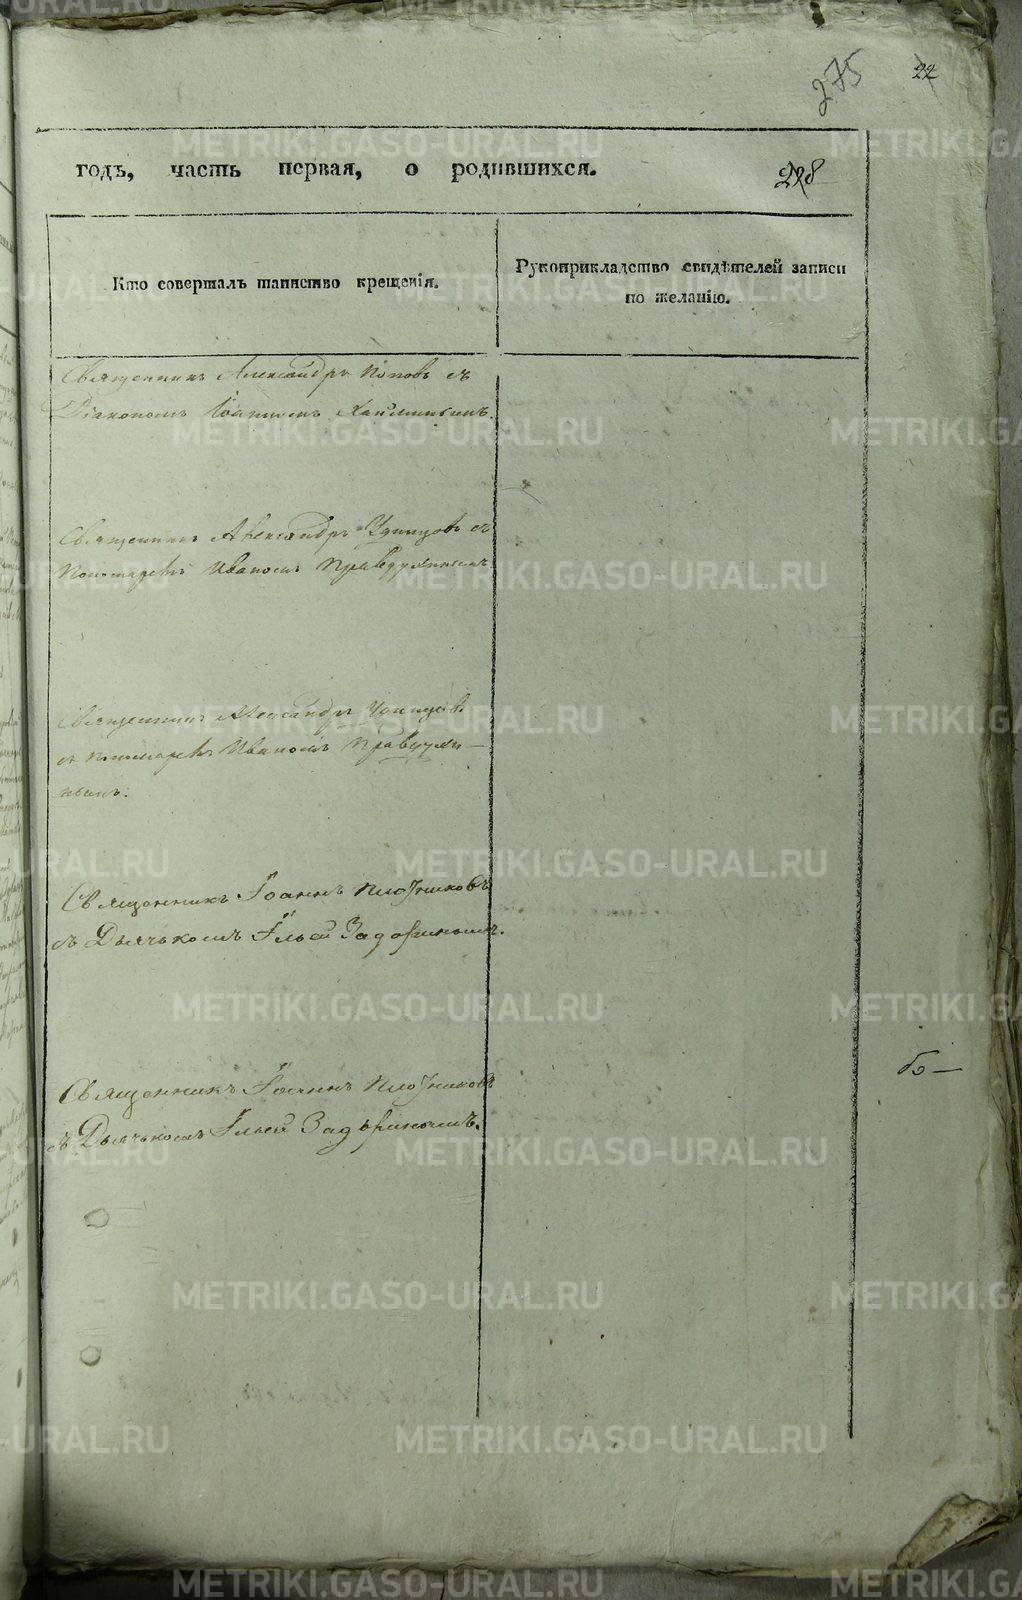 275
22
годъ, часть первая, о родившихся.
228
Кто совершалъ таинство крещенія.
Рукоприкладство свидѣтелей записи
по желанію.
Священникъ Александръ Поповъ съ
Діакономъ Іоанномъ
Священникъ Александръ съ
Пономаремъ Иваномъ
Священникъ Александръ
съ пономаремъ Иваномъ
Священникъ Іоаннъ Плотниковъ
съ Дьячькомъ Ильей Задоринымъ.
Священникъ Іоаннъ Плотниковъ
съ Дьячькомъ Ильей Задоринымъ.
METRIKI.GASO-URAL.RU